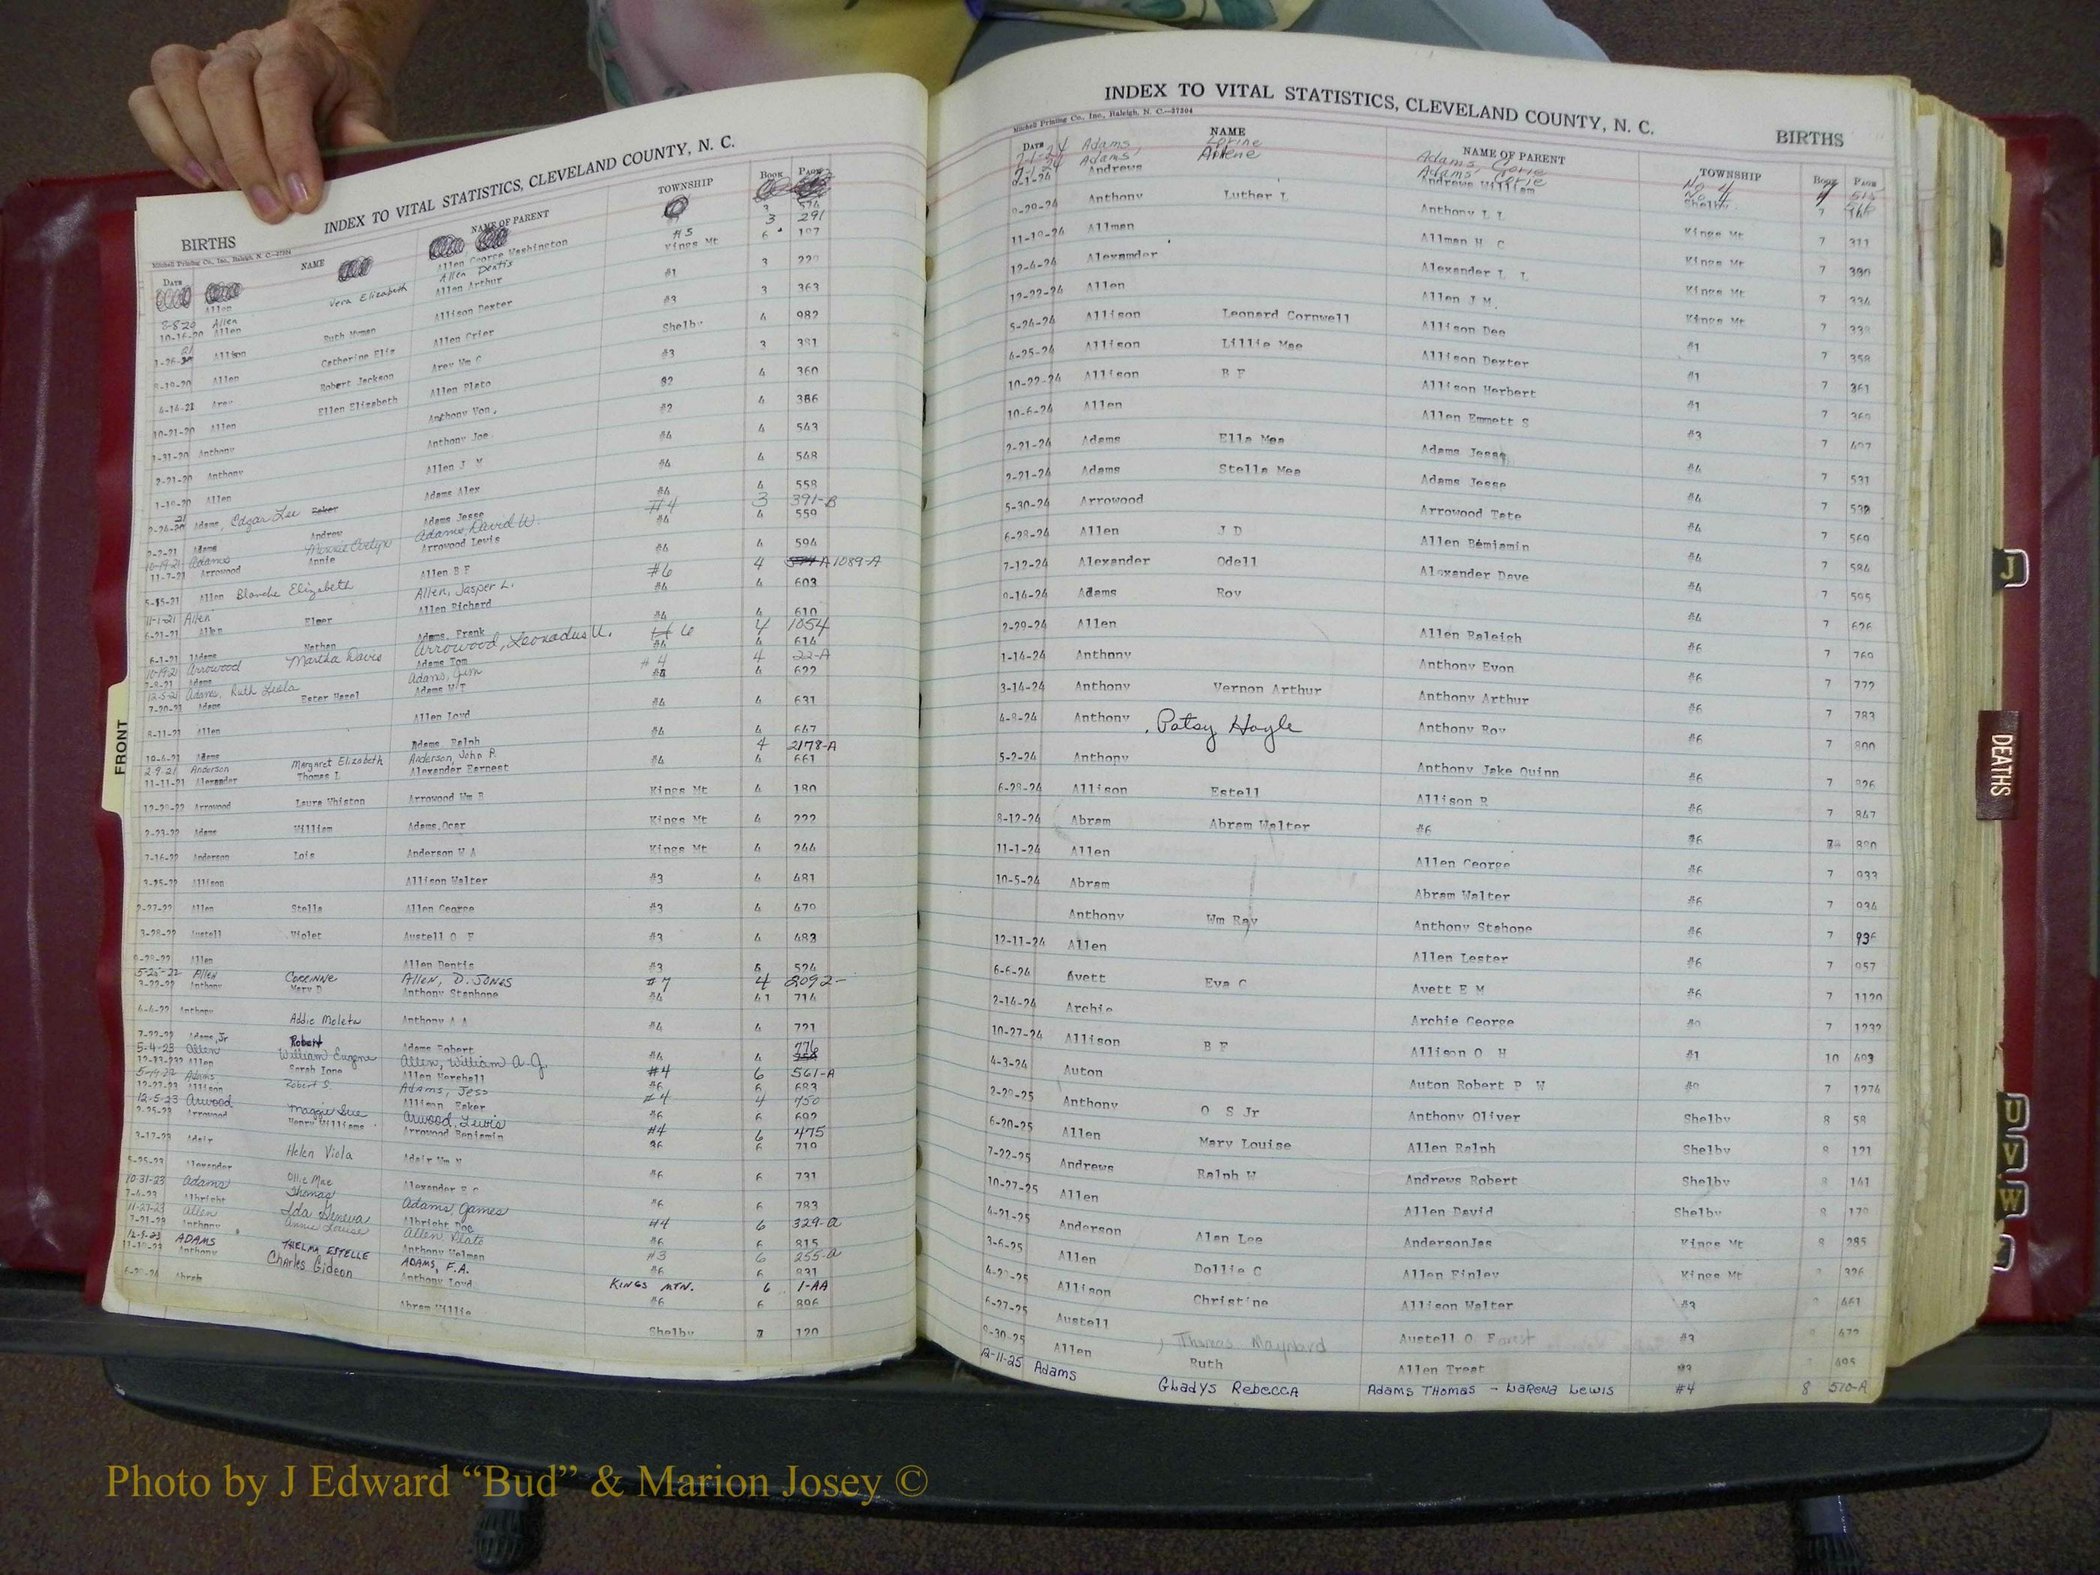 INDEX TO VITAL STATISTICS, CLEVELAND COUNTY, N. C.
BIRTHS
Mitchell Printing Co., Inc., Raleigh, N. C.
DATE NAME NAME OF PARENT TOWNSHIP BOOK PAGE
Allen Allen George Washington
8-8-20 Allen Vera Elizabeth Allen Dentis #5 3 291
10-16-20 Allen Allen Arthur Kings Mt 6 197
Allison Ruth Nyman Allison Dexter #1 3 229
8-19-20 Allen Catherine Eliz Allen Crier #3 3 363
4-14-21 Arey Robert Jackson Arey Wm C Shelby 4 982
10-21-20 Allen Ellen Elizabeth Allen Plato #3 3 381
1-31-20 Anthony Anthony Von. #2 4 360
2-21-20 Anthony Anthony Joe #2 4 386
1-19-20 Allen Allen J M #4 4 543
Adams, Edgar Lee Adams Alex #4 4 548
2-2-21 Adams Andrew Adams Jesse #4 4 558
10-19-21 Adams Minnie Evelyn Adams, David W. #4 3 391-B
11-7-21 Arrowood Annie Arrowood Lewis #4 4 559
5-15-21 Allen Allen B F #4 4 594
11-1-21 Allen Blanche Elizabeth Allen, Jasper L. #6 4 1089-A
6-21-21 Allen Elmer Allen Richard #4 4 603
6-1-21 Adams Nathan Adams, Frank #4 4 610
10-19-21 Arrowood Martha Davis Arrowood, Leonadus U. 6 4 1054
7-8-21 Adams Adams Tom #4 4 614
12-5-21 Adams, Ruth Leola Adams, Jim #4 4 22-A
7-20-21 Adams Ester Hazel Adams W T #4 4 622
8-11-21 Allen Allen Loyd #4 4 631
10-4-21 Adams Adams Ralph #4 4 647
2-9-21 Anderson Margaret Elizabeth Anderson, John P. 4 2178-A
11-11-21 Alexander Thomas L Alexander Earnest #4 4 661
12-29-22 Arrowood Laura Whiston Arrowood Wm B Kings Mt 4 180
2-23-22 Adams William Adams, Ocar Kings Mt 4 222
7-16-22 Anderson Lois Anderson W A Kings Mt 4 244
3-25-22 Allison Allison Walter #3 4 481
2-27-22 Allen Stella Allen George #3 4 479
3-28-22 Austell Violet Austell O F #3 4 483
9-28-22 Allen Allen Dentis #3 524
5-25-22 Allen Corrinne Allen, D. Jones #7 4 2092-
3-22-22 Anthony Mary D Anthony Stanhope #4 41 714
4-4-22 Anthony Addie Moleta Anthony A A #4 4 721
7-22-22 Adams, Jr Robert Adams Robert #4 4 776
5-4-23 Allen William Eugene Allen, William A. J. #4 6 561-A
Allen Sarah Ione Allen Marshall #6 6 683
5-19-22 Adams Robert S. Adams, Jess #4 4 750
12-27-23 Allison Allison Baker #6 6 692
12-5-23 Arwood Maggie Sue Arwood, Lewis #4 6 475
2-25-23 Arrowood Henry Williams Arrowood Benjamin #6 6 719
3-17-23 Adair Helen Viola Adair Wm M #6 6 731
5-25-23 Alexander Alexander R C #6 6 783
10-31-23 Adams Ollie Mae Adams, James #4 6 329-a
7-4-23 Albright Thomas Albright Doc #6 6 815
11-27-23 Allen Ida Geneva Allen Plato #3 6 255-a
7-21-23 Anthony Annie Louise Anthony Holman #6 6 831
12-9-23 ADAMS THELMA ESTELLE ADAMS, F.A. KINGS MTN. 6 1-AA
11-19-23 Anthony Charles Gideon Anthony Loyd #6 6 896
6-29-24 Abram Abram Willie Shelby 7 120
FRONT
INDEX TO VITAL STATISTICS, CLEVELAND COUNTY, N. C.
BIRTHS
Mitchell Printing Co., Inc., Raleigh, N. C.—37304
DATE NAME NAME OF PARENT TOWNSHIP BOOK PAGE
Adams Lorine Adams, Corie No. 4 7 515
7-1-24 Adams, Ailene Adams, Corie No. 4 7 516
Andrews Andrews William Shelby
9-29-24 Anthony Luther L Anthony L L Kings Mt 7 311
11-19-24 Allman Allman H C Kings Mt 7 300
12-4-24 Alexander Alexander L L Kings Mt 7 334
12-22-24 Allen Allen J M. Kings Mt 7 338
5-24-24 Allison Leonard Cornwell Allison Dee #1 7 358
4-25-24 Allison Lillie Mae Allison Dexter #1 7 361
10-22-24 Allison B F Allison Herbert #1 7 369
10-6-24 Allen Allen Emmett S #3 7 497
2-21-24 Adams Ella Mea Adams Jesse #4 7 531
2-21-24 Adams Stella Mea Adams Jesse #4 7 532
5-30-24 Arrowood Arrowood Tate #4 7 569
6-28-24 Allen J D Allen Bemiamin #4 7 584
7-12-24 Alexander Odell Alexander Dave #4 7 595
9-14-24 Adams Roy #4 7 626
2-29-24 Allen Allen Raleigh #6 7 769
1-14-24 Anthony Anthony Evon #6 7 772
3-14-24 Anthony Vernon Arthur Anthony Arthur #6 7 783
4-8-24 Anthony Patsy Hoyle Anthony Roy #6 7 800
5-2-24 Anthony Anthony Jake Quinn #6 7 826
6-28-24 Allison Estell Allison R #6 7 847
8-12-24 Abram Abram Walter #6 #6 880
11-1-24 Allen Allen George #6 7 933
10-5-24 Abram Abram Walter #6 7 934
Anthony Wm Ray Anthony Stahope #6 7 936
12-11-24 Allen Allen Lester #6 7 957
6-6-24 Avett Eva C Avett E M #6 7 1120
2-14-24 Archie Archie George #9 7 1232
10-27-24 Allison B F Allison O H #1 10 493
4-3-24 Auton Auton Robert P W #9 7 1274
2-29-25 Anthony O S Jr Anthony Oliver Shelby 8 58
6-20-25 Allen Mary Louise Allen Ralph Shelby 8 121
7-22-25 Andrews Ralph W Andrews Robert Shelby 8 141
10-27-25 Allen Allen David Shelby 8 179
4-21-25 Anderson Alan Lee AndersonJas Kings Mt 8 285
3-6-25 Allen Dollie C Allen Finley Kings Mt 326
4-29-25 Allison Christine Allison Walter #3 461
6-27-25 Austell Thomas Maynard Austell O Forest #3 472
9-30-25 Allen Ruth Allen Treat #3 495
12-11-25 Adams Gladys Rebecca Adams Thomas - Larena Lewis #4 8 510-A
J
DEATHS
U
V
W
Photo by J Edward “Bud” & Marion Josey ©